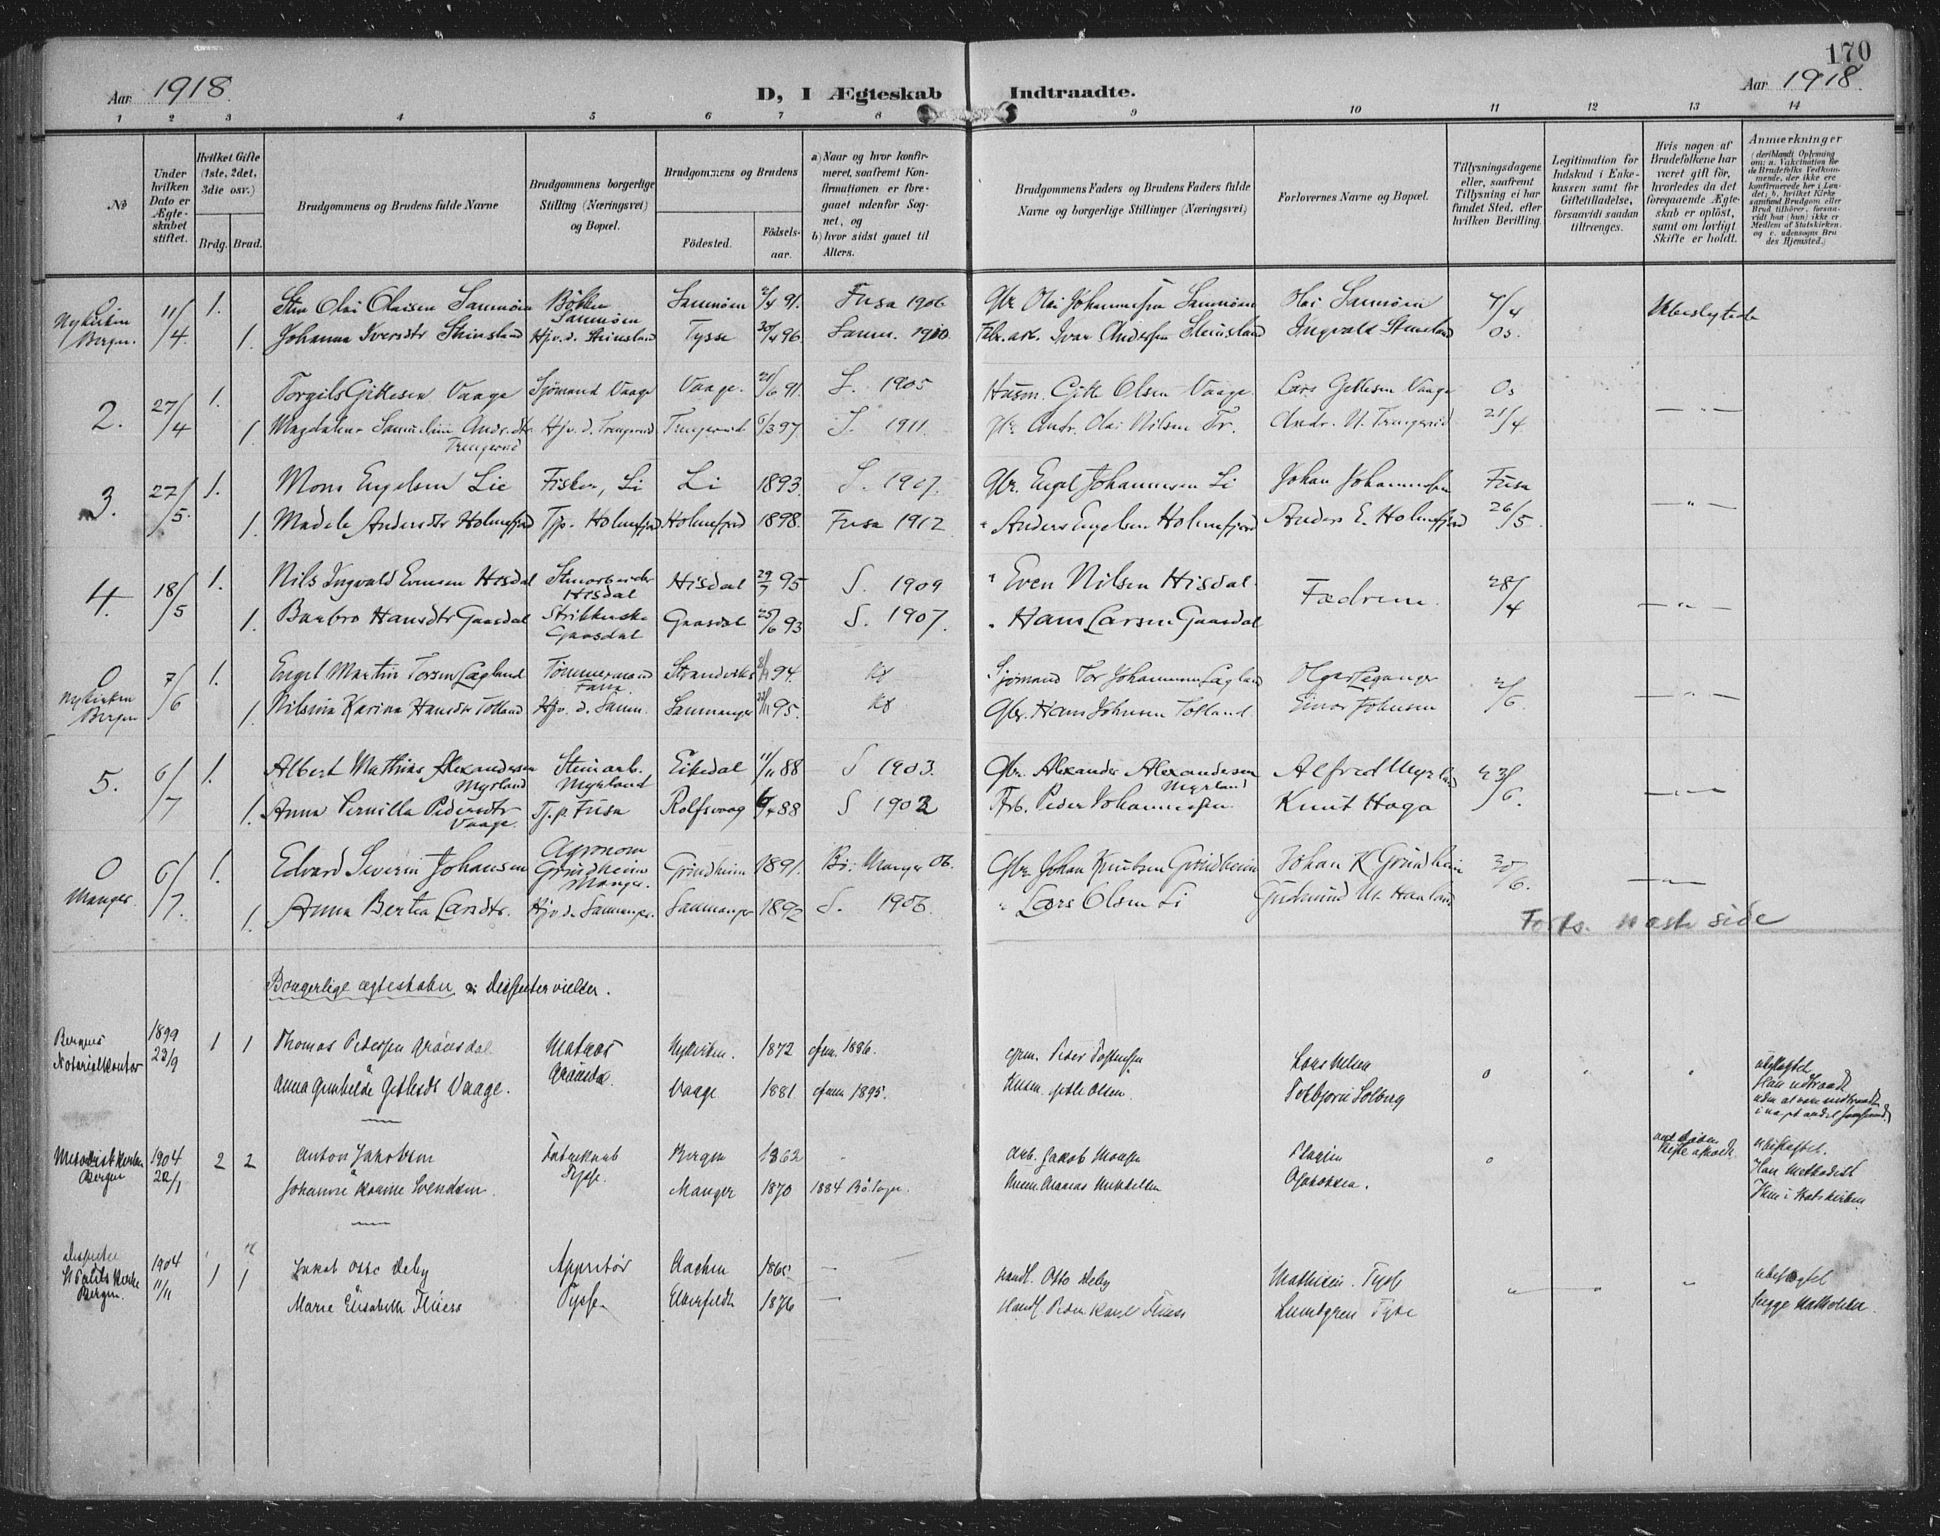 170
Aar 1918. D, I Ægteskab Indtraadte. Aar 1918.
1 2 3 4 5 6 7 8 9 10 11 12 13 14
No
Under hvilken Dato er Ægteskabet stiftet.
Hvilket Gifte (1ste, 2det, 3die osv.)
Brdg. Brud.
Brudgommens og Brudens fulde Navne
Brudgommens borgerlige Stilling (Næringsvei) og Bopæl.
Brudgommens og Brudens
Födested. Födsels-aar.
a) Naar og hvor konfirmeret, saafremt Konfirmationen er foregaaet udenfor Sognet, og
b) hvor sidst gaaet til Alters.
Brudgommens Faders og Brudens Faders fulde Navne og borgerlige Stillinger (Næringsvei)
Forlovernes Navne og Bopæl.
Tillysningsdagene eller, saafremt Tillysning ei har fundet Sted, efter hvilken Bevilling.
Legitimation for Indskud i Enkekassen samt for Giftetilladelse, forsaavidt saadan tiltrænges.
Hvis nogen af Brudefolkene har været gift för, hvorledes da det foregaaende Ægteskab er oplöst, samt om lovligt Skifte er holdt.
Anmerkninger
(deriblandt Oplysning om: a. Vakcination for de Brudefolks Vedkommende, der ikke ere konfirmerede her i Landet; b. hvilket Kirkesamfund Brudgom eller Brud tilhörer, forsaavidt han (hun) ikke er Medlem af Statskirken, og c. udensogns Brudes Hjemsted.)
0 Nykirken Bergen. 11/4 1. Sten Olai Olaisen Samnöen Samnöen 2/4 91. Fusa 1906 Gbr. Olai Johannessen Samnöen Olai Samnöen 7/4 Ubeslegtede
1. Johanna Iversdtr Steinsland Hjv. d. Steinsland Tysse 20/4 96 Samn. 1910 Ivar Andersen Steinsland Ingvald Steinsland Os.
2. 27/4 1. Torgils Gitlesen Vaage Sjömand Vaage Vaage. 21/6 91. S. 1905 Husm. Gitle Olsen Vaage Lars Gitlesen Vaage Os
1. Magdalena Samueline Andr.dtr Trengereid Hjv. d. Trengereid Trengereid 6/3 97 S. 1911. Andr. Olai Nilsen Tr. Andr. N. Trengereid 21/4 — " —
3. 27/5. 1. Mons Engelsen Lie Fisker, Li Li 1893. S. 1907. Gbr. Engel Johannesen Li Johan Johannessen Fusa
1. Madele Andersdtr Holmefjord Tjp. Holmefjord Holmefjord 1898. Fusa 1912 " Anders Engelsen Holmefjord Anders E. Holmefjord 26/5 — " —
4. 18/5 1. Nils Ingvald Evensen Hisdal Stenarbeider Hisdal Hisdal 29/7 95 S. 1909 " Even Nilsen Hisdal Fædrene. 28/4
1. Barbro Hansdtr Gaasdal Strikkerske Gaasdal Gaasdal 25/6 93 S. 1907. " Hans Larsen Gaasdal — " —
0 Nykirken Bergen 7/6 1. Engel Martin Torsen Lægland Tömmermand Fana Strandvik 94. Sjömand Tor Johannesen Lægland 2/6.
1. Nilsina Karina Hansdtr Totland Hjv. d. Samn. Samnanger 95. Gbr. Hans Johnsen Totland. Einar Johnsen — " —
5. 6/7 1. Albert Mathias Alexandersen Myrland Steinarb. Myrland Eikedal 11/11 88 S 1903. Gbr. Alexander Alexandersen Myrland Alfred Myrland 23/6.
1. Anna Pernilla Pedersdtr Vaage Tj. p. Fusa Rolfsvaag 88 S 1902 Peder Johannessen Knut Haga — " —
0 Manger. 6/7. 1. Edvard Severin Johansen Agronom Grindheim Manger. Grindheim 1891. Manger 06. Gbr. Johan Knutsen Grindheim Johan K Grindheim 30/6.
1. Anna Berta Larsdtr. Hjv. d. Samnanger. Samnanger 1892 S. 1906. " Lars Olsen Li Gudmund M. Haaland — " —
Forts. næste side
Borgerlige ægteskaber og Dissentervielser.
Bergens Notarialkontor 1899 23/9 1 1 Thomas Pedersen Gråasdal Gråasdal Nykirken. 1872 1886. Peder Lars Nilsen 0 "
Anna Gunhilde Gitlesdt Vaage. Vaage 1881 1895. Gitle Olsen Torbjörn Solberg
Metodistkirken Bergen 1904 22/1 2 2 Anton Jakobsen Tysse. Bergen 1862 - Arb. Jakob Monsen 0 Han Metodist
Johanne Karine Svendsen. Manger 1870 1884 Hun i Statskirken
St Pauls Kirke Bergen. 1904 11/11 1 1 Jakob Otto Deby Appretör Aachen 1865 — Handl. Otto Deby Mathisen. Tysse " "
Marie Elisabeth Tysse. Elberfeldt 1876 — Handl. Lundgren Tysse begge Katholiker.